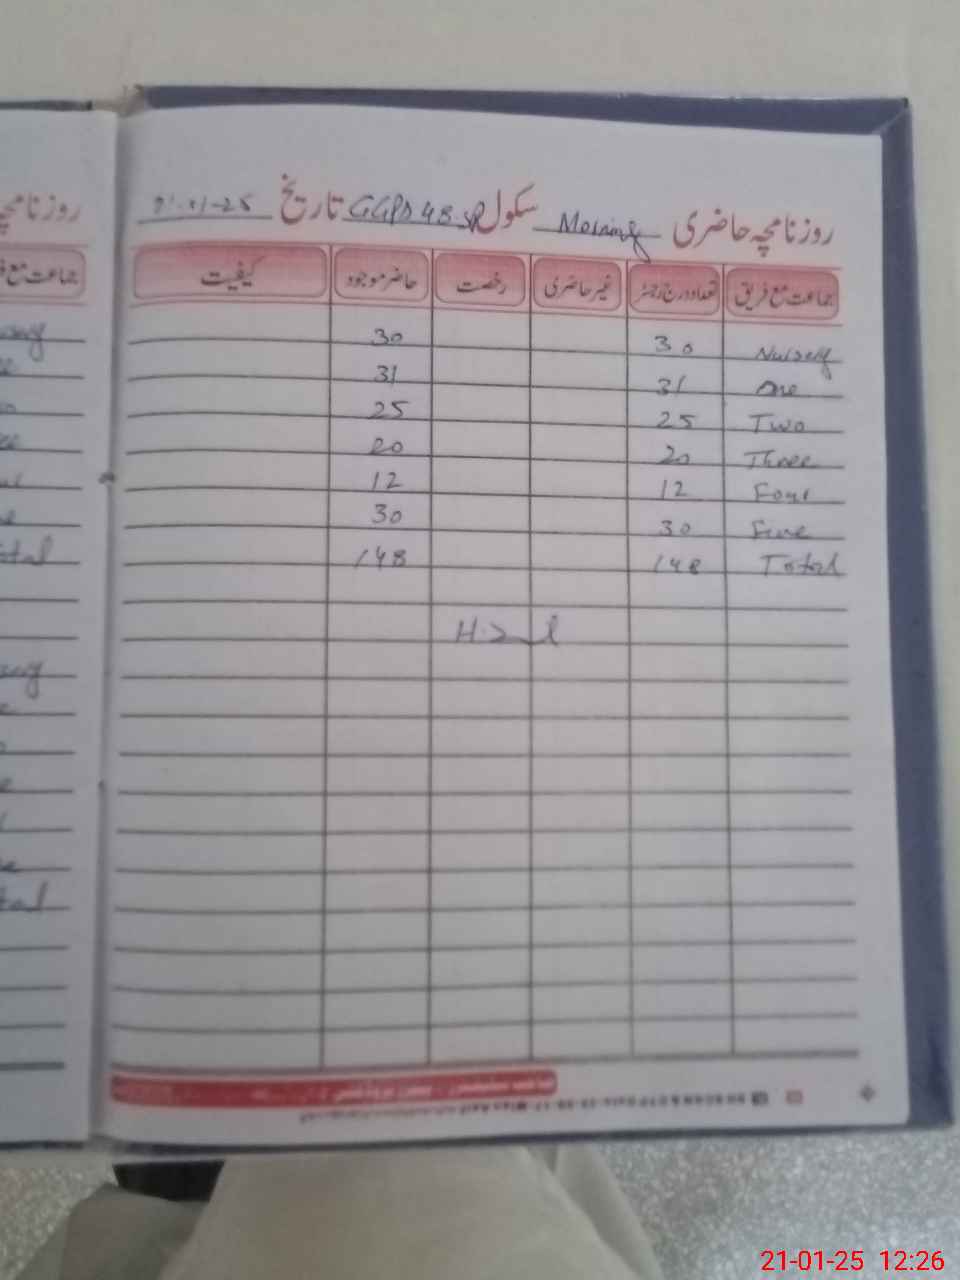 روزنامچہ حاضری Morning سکول GGPS 48 SP تاریخ 21-01-25
جماعت مع فریق تعداد درج رجسٹر غیر حاضری رخصت حاضر موجود کیفیت
Nursery 30 30
One 31 31
Two 25 25
Three 20 20
Four 12 12
Five 30 30
Total 148 148
روزنامچہ
جماعت مع
21-01-25 12:26